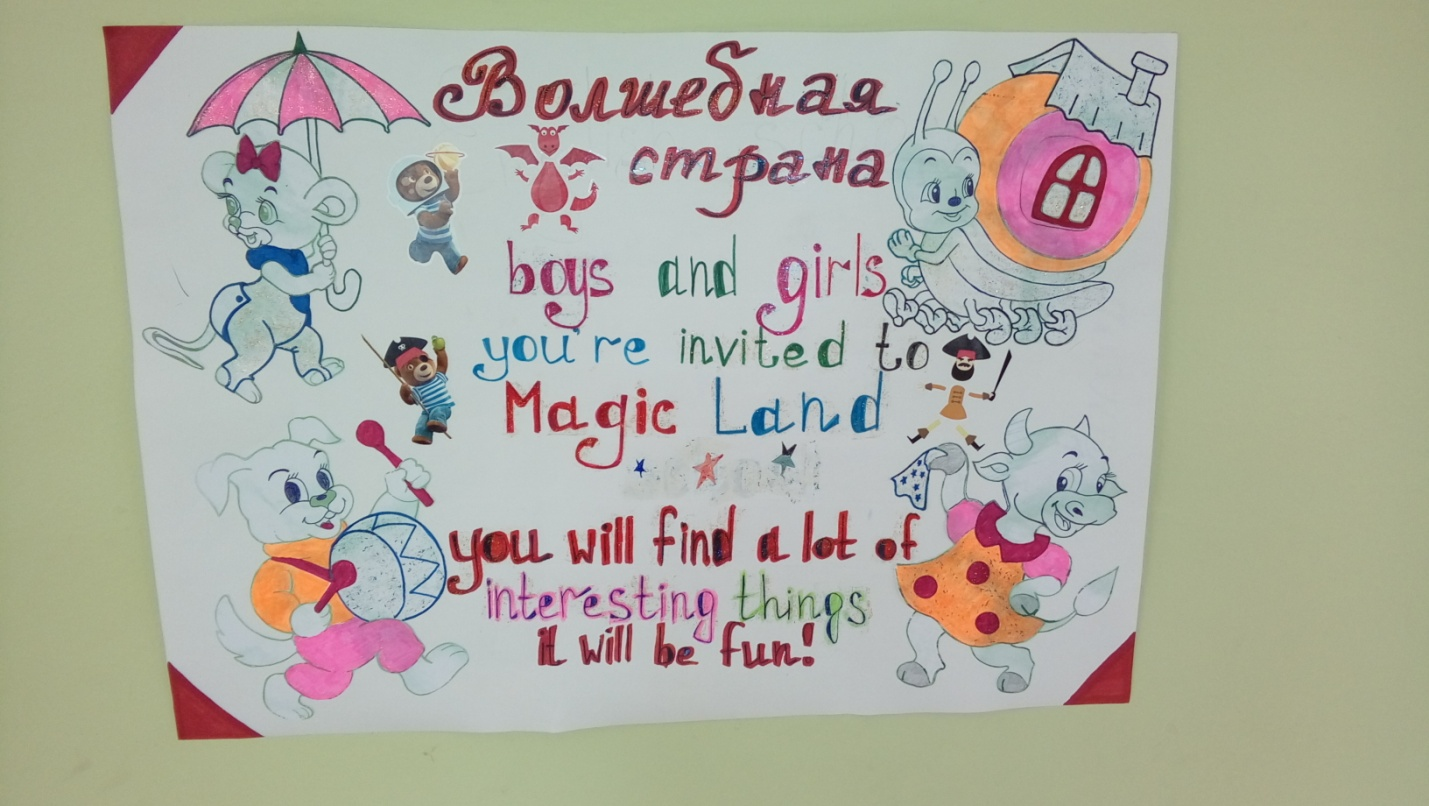 Волшебная
страна
boys and girls
you're invited to
Magic Land
you will find a lot of
interesting things
it will be fun!